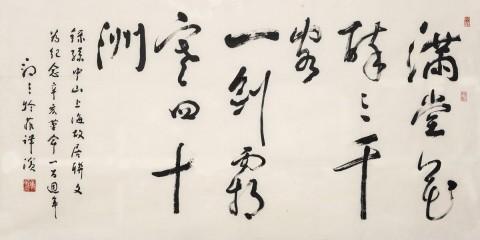 滿堂花
醉三千
客
一劍霜
寒四十
洲
錄孫中山上海故居聯文
为紀念辛亥革命一百週年
於菲律濱